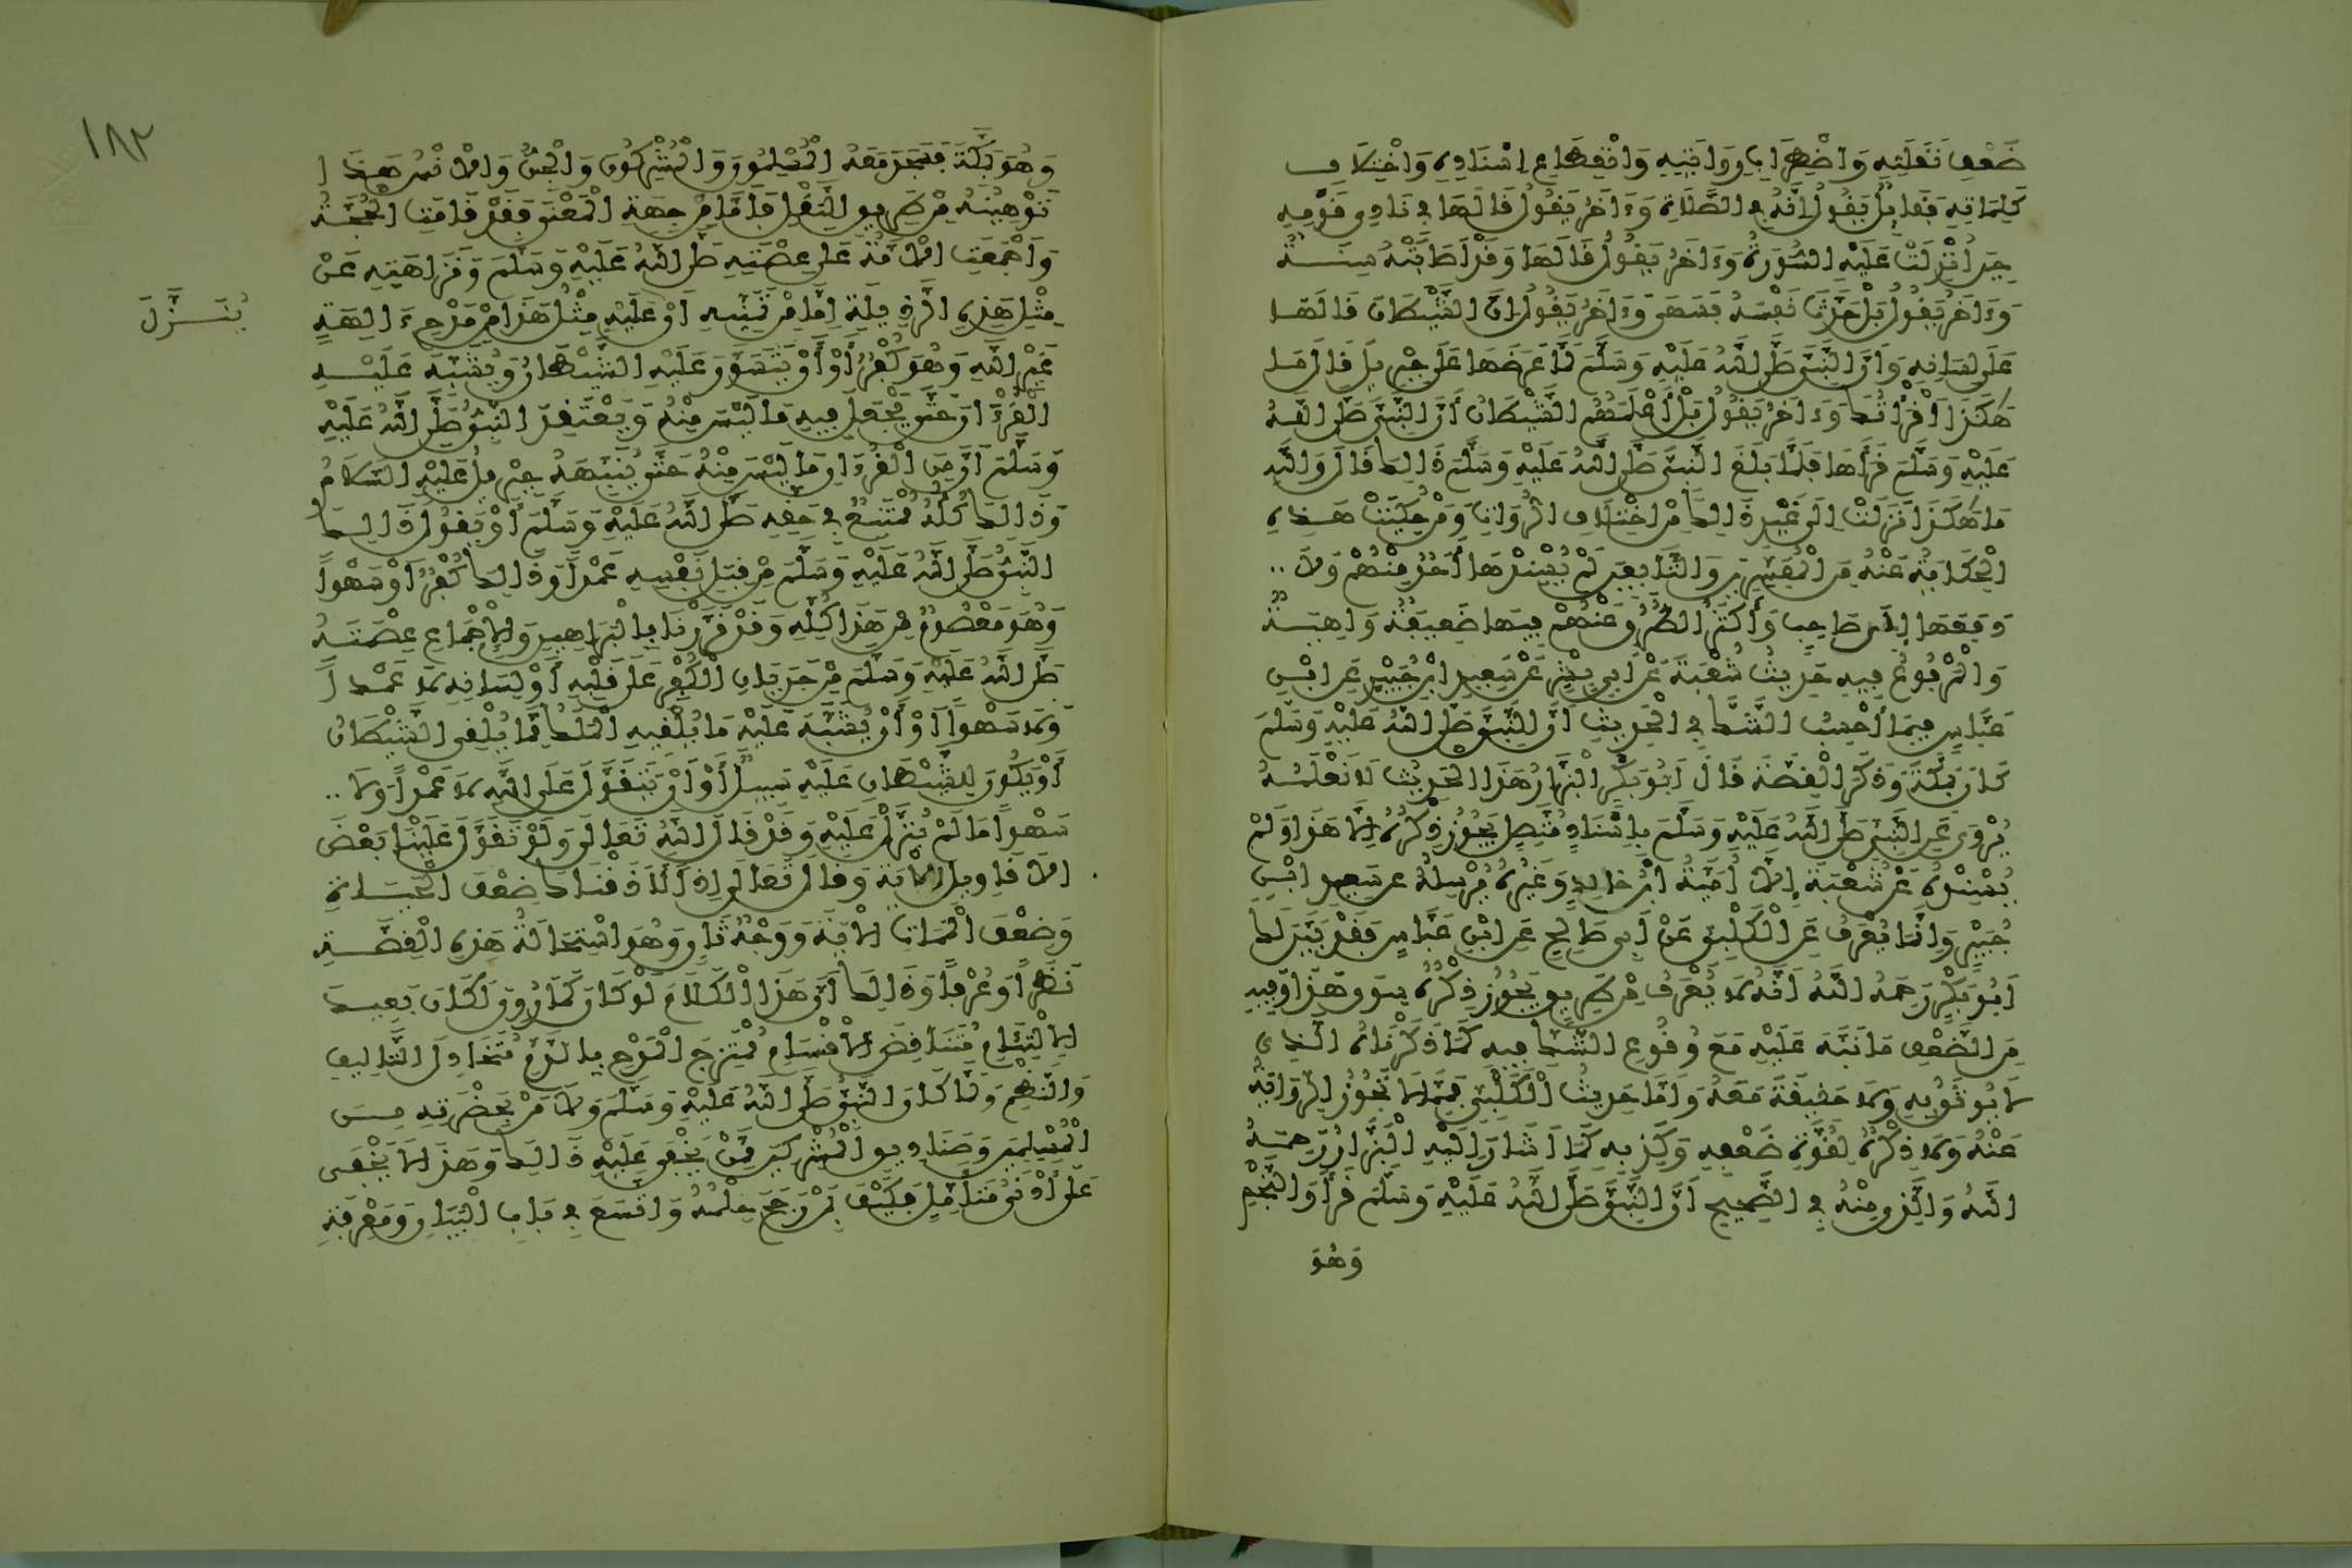 ضَعْفِ نَقَلَتِهِ وَاضْطِرَابِ رِوَايَتِهِ وَانْقِطَاعِ إِسْنَادِهِ وَاخْتِلَافِ
كَلِمَاتِهِ فَقَائِلٌ يَقُولُ إِنَّهُ فِي الصَّلَاةِ وَءَاخَرُ يَقُولُ قَالَهَا فِي نَادِي قَوْمِهِ
حِينَ أُنْزِلَتْ عَلَيْهِ السُّورَةُ وَءَاخَرُ يَقُولُ قَالَهَا وَقَدْ أَصَابَتْهُ سِنَةٌ
وَءَاخَرُ يَقُولُ بَلْ حَدَّثَ نَفْسَهُ فَسَهَى وَءَاخَرُ يَقُولُ إِنَّ الشَّيْطَانَ قَالَهَا
عَلَى لِسَانِهِ وَأَنَّ النَّبِيَّ صَلَّى اللَّهُ عَلَيْهِ وَسَلَّمَ لَمَّا عَرَضَهَا عَلَى جِبْرِيلَ قَالَ مَا
هَكَذَا أَقْرَأْتُكَ وَءَاخَرُ يَقُولُ بَلْ أَعْلَمَهُمُ الشَّيْطَانُ أَنَّ النَّبِيَّ صَلَّى اللَّهُ
عَلَيْهِ وَسَلَّمَ قَرَأَهَا فَلَمَّا بَلَغَ النَّبِيَّ صَلَّى اللَّهُ عَلَيْهِ وَسَلَّمَ ذَالِكَ قَالَ وَاللَّهِ
مَا هَكَذَا نَزَلَتْ إِلَى غَيْرِ ذَالِكَ مِنْ اخْتِلَافِ الرُّوَاةِ وَمَنْ حُكِيَتْ هَذِهِ
الْحِكَايَةُ عَنْهُ مِنَ الْمُفَسِّرِينَ وَالتَّابِعِينَ لَمْ يُسْنِدْهَا أَحَدٌ مِنْهُمْ وَلَا
رَفَعَهَا إِلَى صَاحِبٍ وَأَكْثَرُ الطُّرُقِ عَنْهُمْ فِيهَا ضَعِيفَةٌ وَاهِيَةٌ
وَالْمَرْفُوعُ فِيهِ حَدِيثُ شُعْبَةَ عَنْ أَبِي بِشْرٍ عَنْ سَعِيدِ ابْنِ جُبَيْرٍ عَنِ ابْنِ
عَبَّاسٍ فِيمَا أَحْسِبُ الشَّكُّ فِي الْحَدِيثِ أَنَّ النَّبِيَّ صَلَّى اللَّهُ عَلَيْهِ وَسَلَّمَ
كَانَ بِمَكَّةَ وَذَكَرَ الْقِصَّةَ قَالَ أَبُو بَكْرٍ الْبَزَّارُ هَذَا الْحَدِيثُ لَا نَعْلَمُهُ
يُرْوَى عَنِ النَّبِيِّ صَلَّى اللَّهُ عَلَيْهِ وَسَلَّمَ بِإِسْنَادٍ مُتَّصِلٍ يَجُوزُ ذِكْرُهُ إِلَّا هَذَا وَلَمْ
يُسْنِدْهُ عَنْ شُعْبَةَ إِلَّا أُمَيَّةُ ابْنُ خَالِدٍ وَغَيْرُهُ يُرْسِلُهُ عَنْ سَعِيدِ ابْنِ
جُبَيْرٍ وَإِنَّمَا يُعْرَفُ عَنِ الْكَلْبِيِّ عَنْ أَبِي صَالِحٍ عَنِ ابْنِ عَبَّاسٍ فَقَدْ بَيَّنَ لَكَ
أَبُو بَكْرٍ رَحِمَهُ اللَّهُ أَنَّهُ لَا يُعْرَفُ مِنْ طَرِيقٍ يَجُوزُ ذِكْرُهُ سِوَى هَذَا وَفِيهِ
مِنَ الضَّعْفِ مَا نَبَّهَ عَلَيْهِ مَعَ وُقُوعِ الشَّكِّ فِيهِ كَمَا ذَكَرْنَاهُ الَّذِي
لَا يُوثَقُ بِهِ وَلَا حَقِيقَةَ مَعَهُ وَأَمَّا حَدِيثُ الْكَلْبِيِّ فَمِمَّا لَا تَجُوزُ الرِّوَايَةُ
عَنْهُ وَلَا ذِكْرُهُ لِقُوَّةِ ضَعْفِهِ وَكَذِبِهِ كَمَا أَشَارَ إِلَيْهِ الْبَزَّارُ رَحِمَهُ
اللَّهُ وَالَّذِي مِنْهُ فِي الصَّحِيحِ أَنَّ النَّبِيَّ صَلَّى اللَّهُ عَلَيْهِ وَسَلَّمَ قَرَأَ وَالنَّجْمِ
وَهُوَ
١٨٢
وَهُوَ بِمَكَّةَ فَسَجَدَ مَعَهُ الْمُسْلِمُونَ وَالْمُشْرِكُونَ وَالْجِنُّ وَالْإِنْسُ هَذَا
تَوْهِينُهُ مِنْ طَرِيقِ النَّقْلِ فَأَمَّا مِنْ جِهَةِ الْمَعْنَى فَقَدْ قَامَتِ الْحُجَّةُ
وَأَجْمَعَتِ الْأُمَّةُ عَلَى عِصْمَتِهِ صَلَّى اللَّهُ عَلَيْهِ وَسَلَّمَ وَنَزَاهَتِهِ عَنْ
مِثْلِ هَذِهِ الرَّذِيلَةِ إِمَّا مِنْ تَمَنِّيهِ أَنْ عَلَيْهِ مِثْلُ هَذَا مِنْ مَدْحِ ءَالِهَةٍ
يُنَزَّلَ
غَيْرِ اللَّهِ وَهُوَ كُفْرٌ أَوْ أَنْ يَتَسَوَّرَ عَلَيْهِ الشَّيْطَانُ وَيُشَبِّهَ عَلَيْهِ
الْقُرْءَانَ حَتَّى يَجْعَلَ فِيهِ مَا لَيْسَ مِنْهُ وَيَعْتَقِدَ النَّبِيُّ صَلَّى اللَّهُ عَلَيْهِ
وَسَلَّمَ أَنَّ مِنَ الْقُرْءَانِ مَا لَيْسَ مِنْهُ حَتَّى يُنَبِّهَهُ جِبْرِيلُ عَلَيْهِ السَّلَامُ
وَذَالِكَ كُلُّهُ مُمْتَنِعٌ فِي حَقِّهِ صَلَّى اللَّهُ عَلَيْهِ وَسَلَّمَ أَوْ يَقُولُ ذَالِكَ
النَّبِيُّ صَلَّى اللَّهُ عَلَيْهِ وَسَلَّمَ مِنْ قِبَلِ نَفْسِهِ عَمْدًا وَذَالِكَ كُفْرٌ أَوْ سَهْوًا
وَهُوَ مَعْصُومٌ مِنْ هَذَا كُلِّهِ وَقَدْ قَرَّرْنَا بِالْبَرَاهِينِ وَالْإِجْمَاعِ عِصْمَتَهُ
صَلَّى اللَّهُ عَلَيْهِ وَسَلَّمَ مِنْ جَرَيَانِ الْكُفْرِ عَلَى قَلْبِهِ أَوْ لِسَانِهِ لَا عَمْدًا
وَلَا سَهْوًا أَوْ أَنْ يُشَبَّهَ عَلَيْهِ مَا يُلْقِيهِ الْمَلَكُ مِمَّا يُلْقِي الشَّيْطَانُ
أَوْ يَكُونَ لِلشَّيْطَانِ عَلَيْهِ سَبِيلٌ أَوْ أَنْ يَتَقَوَّلَ عَلَى اللَّهِ لَا عَمْدًا وَلَا
سَهْوًا مَا لَمْ يُنَزَّلْ عَلَيْهِ وَقَدْ قَالَ اللَّهُ تَعَالَى وَلَوْ تَقَوَّلَ عَلَيْنَا بَعْضَ
الْأَقَاوِيلِ الْآيَةَ وَقَالَ تَعَالَى إِذًا لَأَذَقْنَاكَ ضِعْفَ الْحَيَاةِ
وَضِعْفَ الْمَمَاتِ الْآيَةَ وَوَجْهٌ ثَانٍ وَهُوَ اسْتِحَالَةُ هَذِهِ الْقِصَّةِ
نَظَرًا وَعُرْفًا وَذَالِكَ أَنَّ هَذَا الْكَلَامَ لَوْ كَانَ كَمَا رُوِيَ لَكَانَ بَعِيدَ
الْإِلْتِئَامِ مُتَنَاقِضَ الْأَقْسَامِ مُمْتَزِجَ الْمَدْحِ بِالذَّمِّ مُتَخَاذِلَ التَّأْلِيفِ
وَالنَّظْمِ وَلَمَا كَانَ النَّبِيُّ صَلَّى اللَّهُ عَلَيْهِ وَسَلَّمَ وَلَا مَنْ بِحَضْرَتِهِ مِنَ
الْمُسْلِمِينَ وَصَنَادِيدِ الْمُشْرِكِينَ مِمَّنْ يَخْفَى عَلَيْهِ ذَالِكَ وَهَذَا لَا يَخْفَى
عَلَى أَدْنَى مُتَأَمِّلٍ فَكَيْفَ بِمَنْ رَجَحَ حِلْمُهُ وَاتَّسَعَ فِي بَابِ الْبَيَانِ وَمَعْرِفَةِ